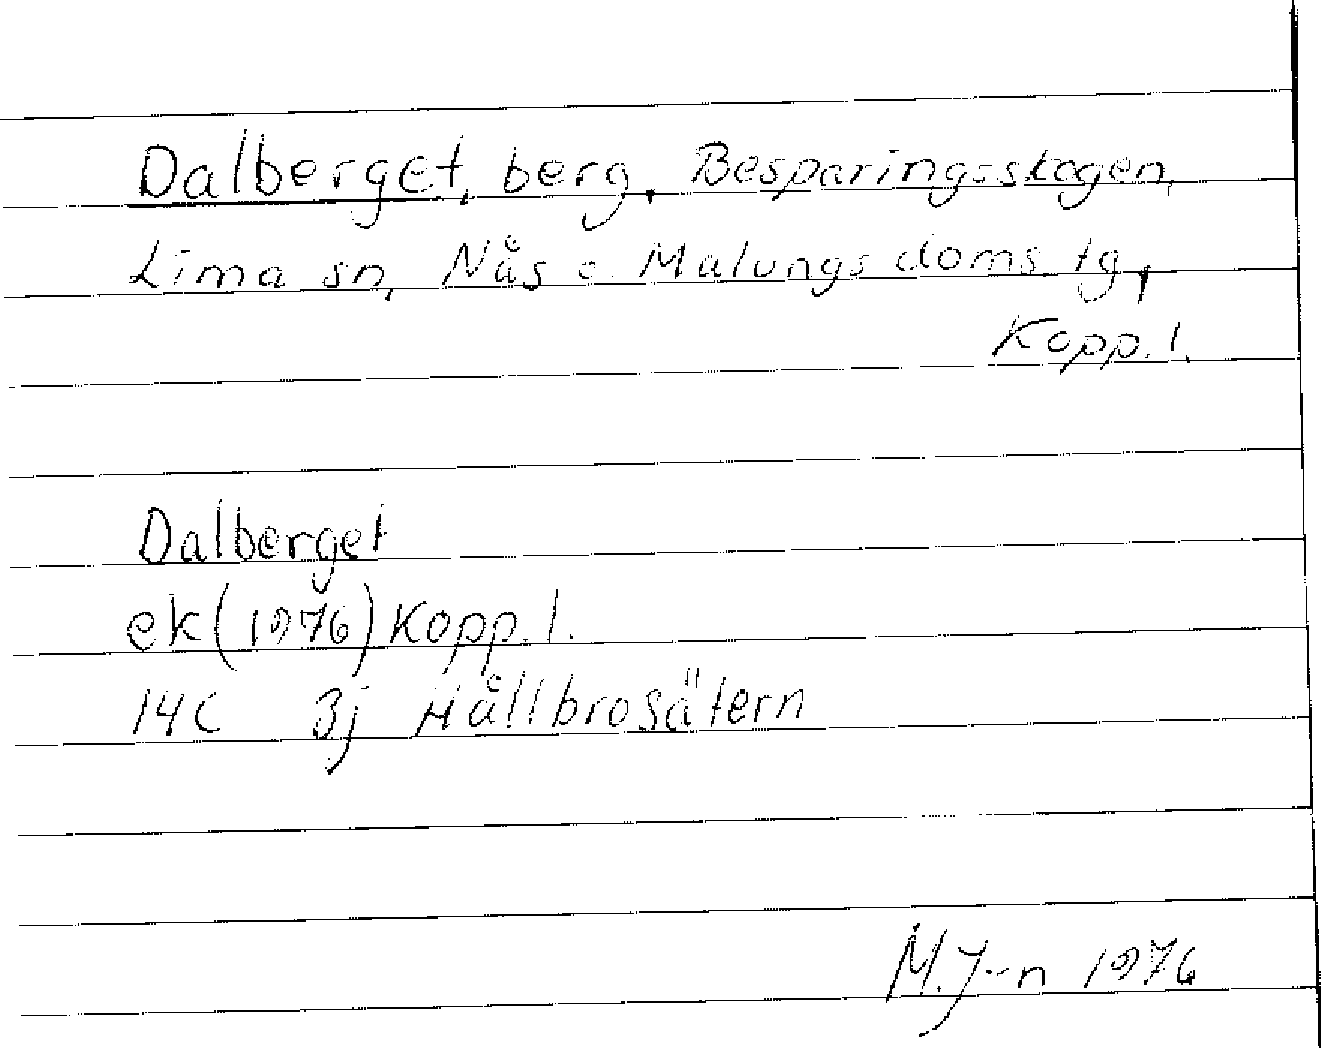 Dalberget, berg, Besparingsskogen,
Lima sn, Nås o. Malungs doms tg,
Kopp. l.
Dalberget
ek (1976) Kopp. l.
14C 3j Hållbrosätern
M. J-n 1976